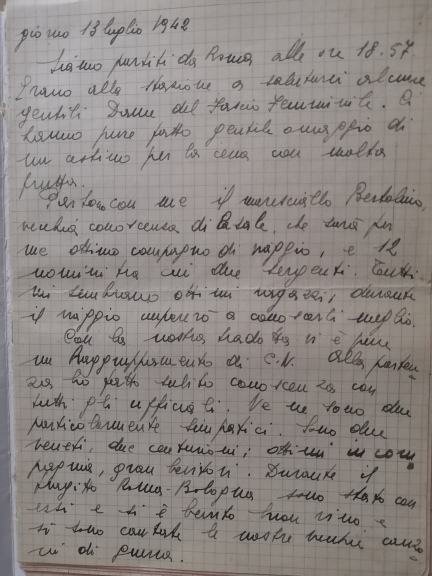 giorno 13 luglio 1942
Siamo partiti da Roma alle ore 18.57.
Erano alla stazione a salutarci alcune
gentili Dame del Fascio Femminile. Ci
hanno pure fatto gentile omaggio di
un cestino per la cena con molta
frutta.
Partono con me il maresciallo Bertolino,
vecchia conoscenza di Casale, che sarà per
me ottimo compagno di viaggio, e 12
uomini tra cui due sergenti. Tutti
mi sembrano ottimi ragazzi; durante
il viaggio imparerò a conoscerli meglio.
Con la nostra tradotta vi è pure
un Raggruppamento di C.N. Alla parten-
za ho fatto subito conoscenza con
tutti gli ufficiali. Ve ne sono due
particolarmente simpatici. Sono due
veneti, due centurioni; ottimi in com
pagnia, gran bevitori. Durante il
tragitto Roma-Bologna sono stato con
essi e si è bevuto buon vino e
si sono cantate le nostre vecchie canzo
ni di guerra.